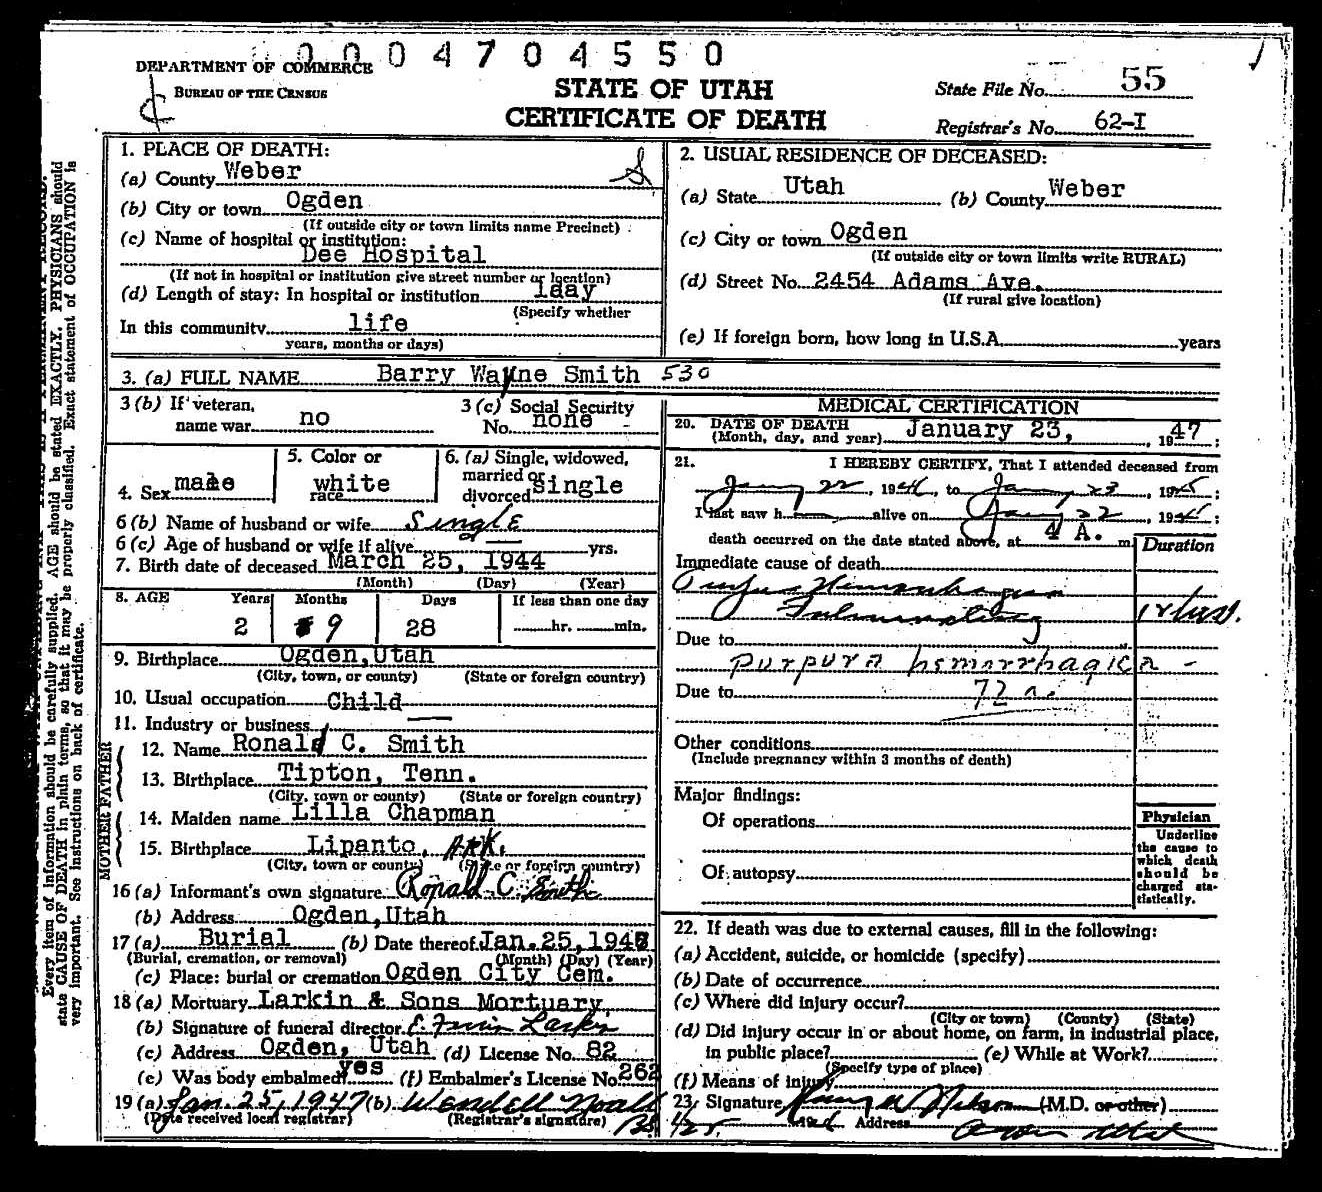 0004704550
DEPARTMENT OF COMMERCE
BUREAU OF THE CENSUS
STATE OF UTAH
CERTIFICATE OF DEATH
State File No. 55
Registrar's No. 62-I
1. PLACE OF DEATH:
(a) County Weber
(b) City or town Ogden
(If outside city or town limits name Precinct)
(c) Name of hospital or institution:
Dee Hospital
(If not in hospital or institution give street number or location)
(d) Length of stay: In hospital or institution 1day
(Specify whether
In this community life
years, months or days)
2. USUAL RESIDENCE OF DECEASED:
(a) State Utah (b) County Weber
(c) City or town Ogden
(If outside city or town limits write RURAL)
(d) Street No. 2454 Adams Ave.
(If rural give location)
(e) If foreign born, how long in U.S.A. years
3. (a) FULL NAME Barry Wayne Smith 530
3 (b) If veteran, name war no
3 (c) Social Security No. none
4. Sex male
5. Color or race white
6. (a) Single, widowed, married or divorced single
6 (b) Name of husband or wife Single
6 (c) Age of husband or wife if alive yrs.
7. Birth date of deceased March 25, 1944
(Month) (Day) (Year)
8. AGE Years Months Days If less than one day
2 9 28 hr. min.
9. Birthplace Ogden, Utah
(City, town, or county) (State or foreign country)
10. Usual occupation Child
11. Industry or business
FATHER
12. Name Ronald C. Smith
13. Birthplace Tipton, Tenn.
(City, town or county) (State or foreign country)
MOTHER
14. Maiden name Lilla Chapman
15. Birthplace Lipanto, Ark.
(City, town or county) (State or foreign country)
16 (a) Informant's own signature Ronald C. Smith
(b) Address Ogden, Utah
17 (a) Burial (b) Date thereof Jan. 25, 1947
(Burial, cremation, or removal) (Month) (Day) (Year)
(c) Place: burial or cremation Ogden City Cem.
18 (a) Mortuary Larkin & Sons Mortuary,
(b) Signature of funeral director Larkin
(c) Address Ogden, Utah (d) License No. 82
(e) Was body embalmed? yes (f) Embalmer's License No. 262
19 (a) Jan. 25, 1947 (b) Wendell Noall
(Date received local registrar) (Registrar's signature)
MEDICAL CERTIFICATION
20. DATE OF DEATH
(Month, day, and year) January 23, 1947;
21. I HEREBY CERTIFY, That I attended deceased from
22, 19 to 23, 19
I last saw h alive on 22, 19
death occurred on the date stated above, at 4 A. m.
Duration
Immediate cause of death
Due to
purpura hemorrhagica -
Due to 72 a.
Other conditions
(Include pregnancy within 3 months of death)
Major findings:
Of operations
Of autopsy
Physician
Underline the cause to which death should be charged statistically.
22. If death was due to external causes, fill in the following:
(a) Accident, suicide, or homicide (specify)
(b) Date of occurrence
(c) Where did injury occur?
(City or town) (County) (State)
(d) Did injury occur in or about home, on farm, in industrial place, in public place? (e) While at Work?
(Specify type of place)
(f) Means of injury
23. Signature Nilson (M.D. or other)
1/25 Address
Every item of information should be carefully supplied. AGE should be stated EXACTLY. PHYSICIANS should
state CAUSE OF DEATH in plain terms, so that it may be properly classified. Exact statement of OCCUPATION is
very important. See instructions on back of certificate.